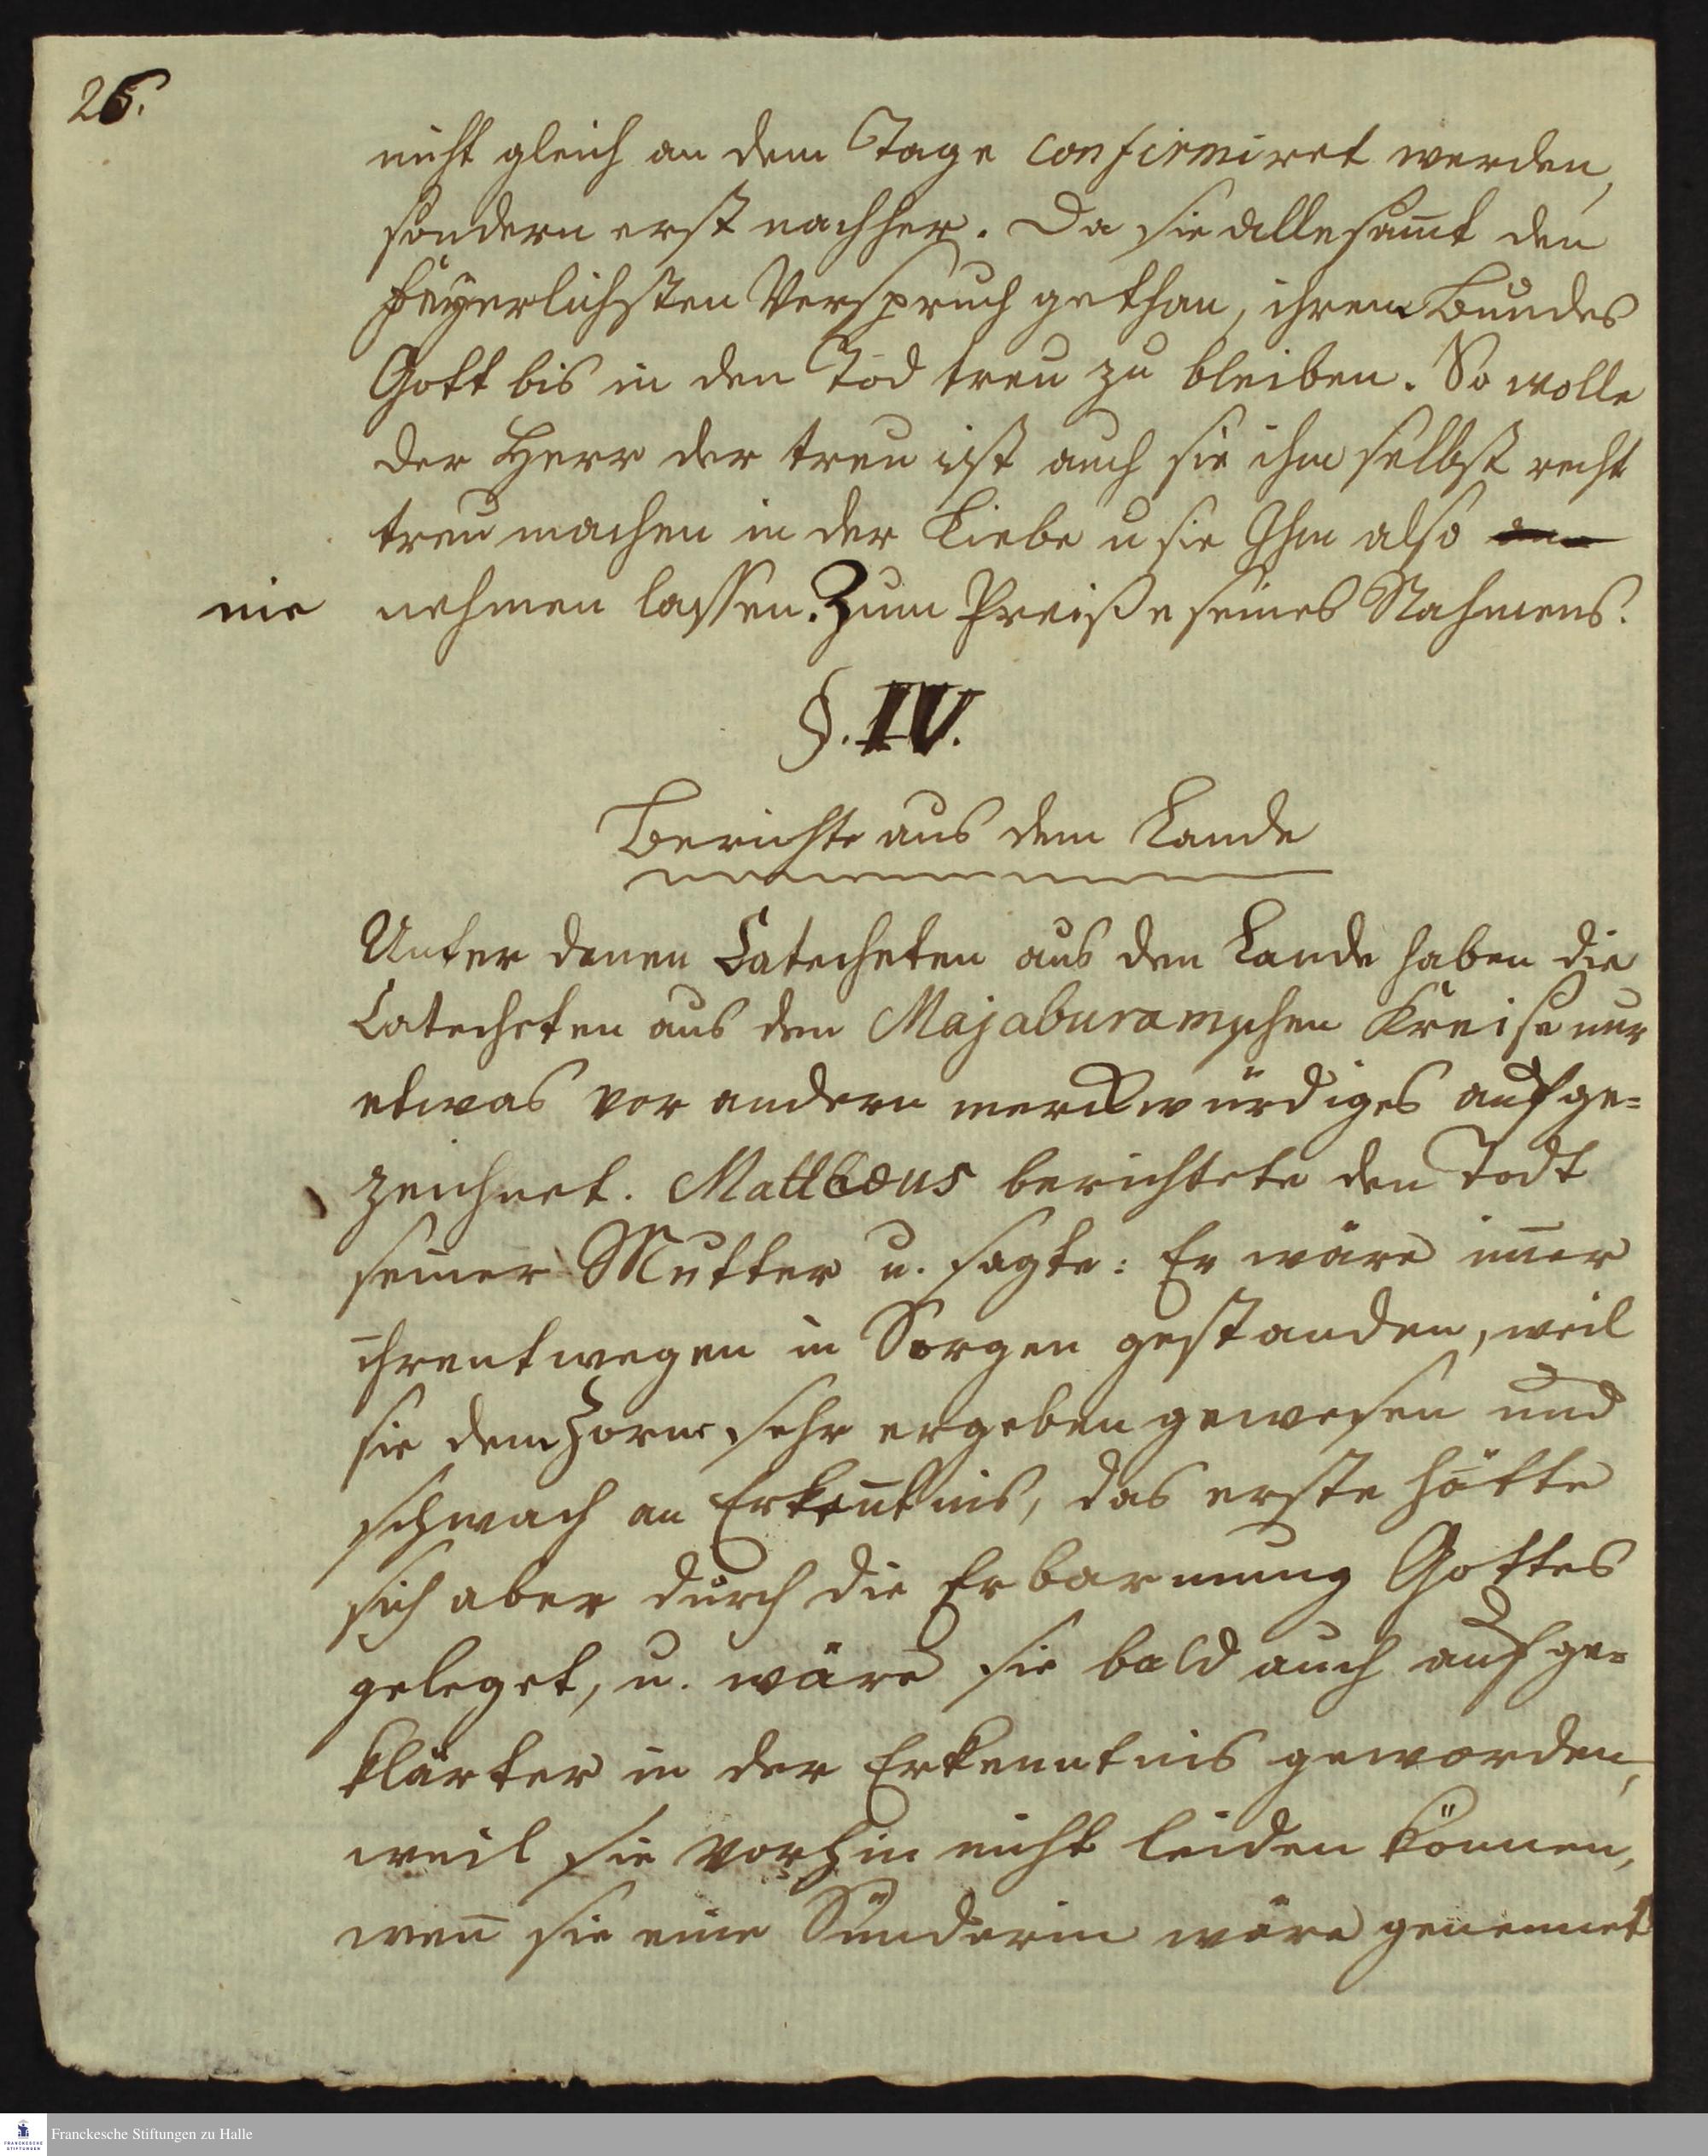 26.
nicht gleich an dem Tage confirmiret werden,
sondern erst nachher. Da sie allesam̅t den
feyerlichsten Verspruch gethan, ihrem Bundes
Gott bis in den Tod treu zu bleiben. So wolle
der Herr der treu ist auch sie ihm selbst recht
treu machen in der Liebe u sie Ihm also
nie nehmen lassen. Zum Preiße seines Nahmens.
§. IV.
Berichte aus dem Lande
Unter denen Catecheten aus den Lande haben die
Catecheten aus den Majaburamschen Kreise nur
etwas vor andern merckwürdiges aufge=
zeichnet. Matthæus berichtete den Todt
seiner Mutter u. sagte: Er wäre im̅er
ihrentwegen in Sorgen gestanden, weil
sie dem Zorne sehr ergeben gewesen und
schwach an Erken̅tnis, das erste hätte
sich aber durch die Erbarmung Gottes
geleget, u. wäre sie bald auch aufge=
klärter in der Erkenntnis geworden,
weil sie vorhin nicht leiden können,
wen̅ sie eine Sünderin wäre genennet
Franckesche Stiftungen zu Halle